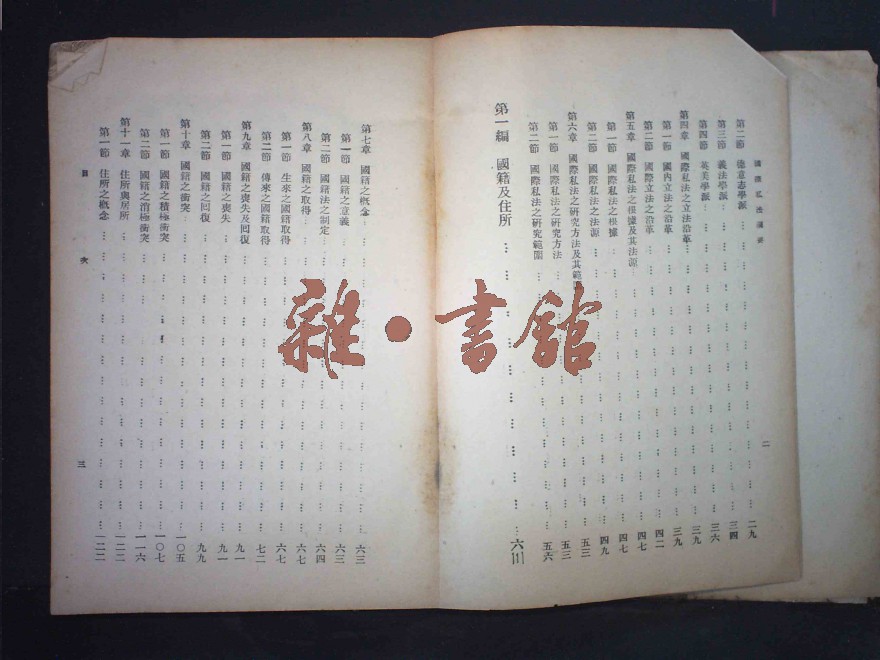 國際私法綱要
二
第二節 德意志學派 … 二九
第三節 義法學派 … 三四
第四節 英美學派 … 三六
第四章 國際私法之立法沿革 … 三九
第一節 國內立法之沿革 … 三九
第二節 國際立法之沿革 … 四二
第五章 國際私法之根據及其法源 … 四七
第一節 國際私法之根據 … 四七
第二節 國際私法之法源 … 四九
第六章 國際私法之研究方法及其範圍 … 五三
第一節 國際私法之研究方法 … 五三
第二節 國際私法之研究範圍 … 五六
第一編 國籍及住所 … 六三
第七章 國籍之概念 … 六三
第一節 國籍之意義 … 六三
第二節 國籍法之制定 … 六四
第八章 國籍之取得 … 六七
第一節 生來之國籍取得 … 六七
第二節 傳來之國籍取得 … 七二
第九章 國籍之喪失及回復 … 九一
第一節 國籍之喪失 … 九一
第二節 國籍之回復 … 九九
第十章 國籍之衝突 … 一〇五
第一節 國籍之積極衝突 … 一〇七
第二節 國籍之消極衝突 … 一一六
第十一章 住所與居所 … 一二二
第一節 住所之概念 … 一二二
目次
三
雜·書館